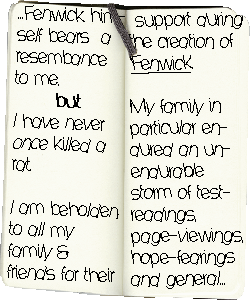 ...Fenwick him-
self bears a
resemblance
to me,
but
I have never
once killed a
rat.
I am beholden
to all my
family &
friends for their
support during
the creation of
Fenwick.
My family in
particular en-
dured an un-
endurable
storm of test-
readings,
page-viewings,
hope-fearings
and general...